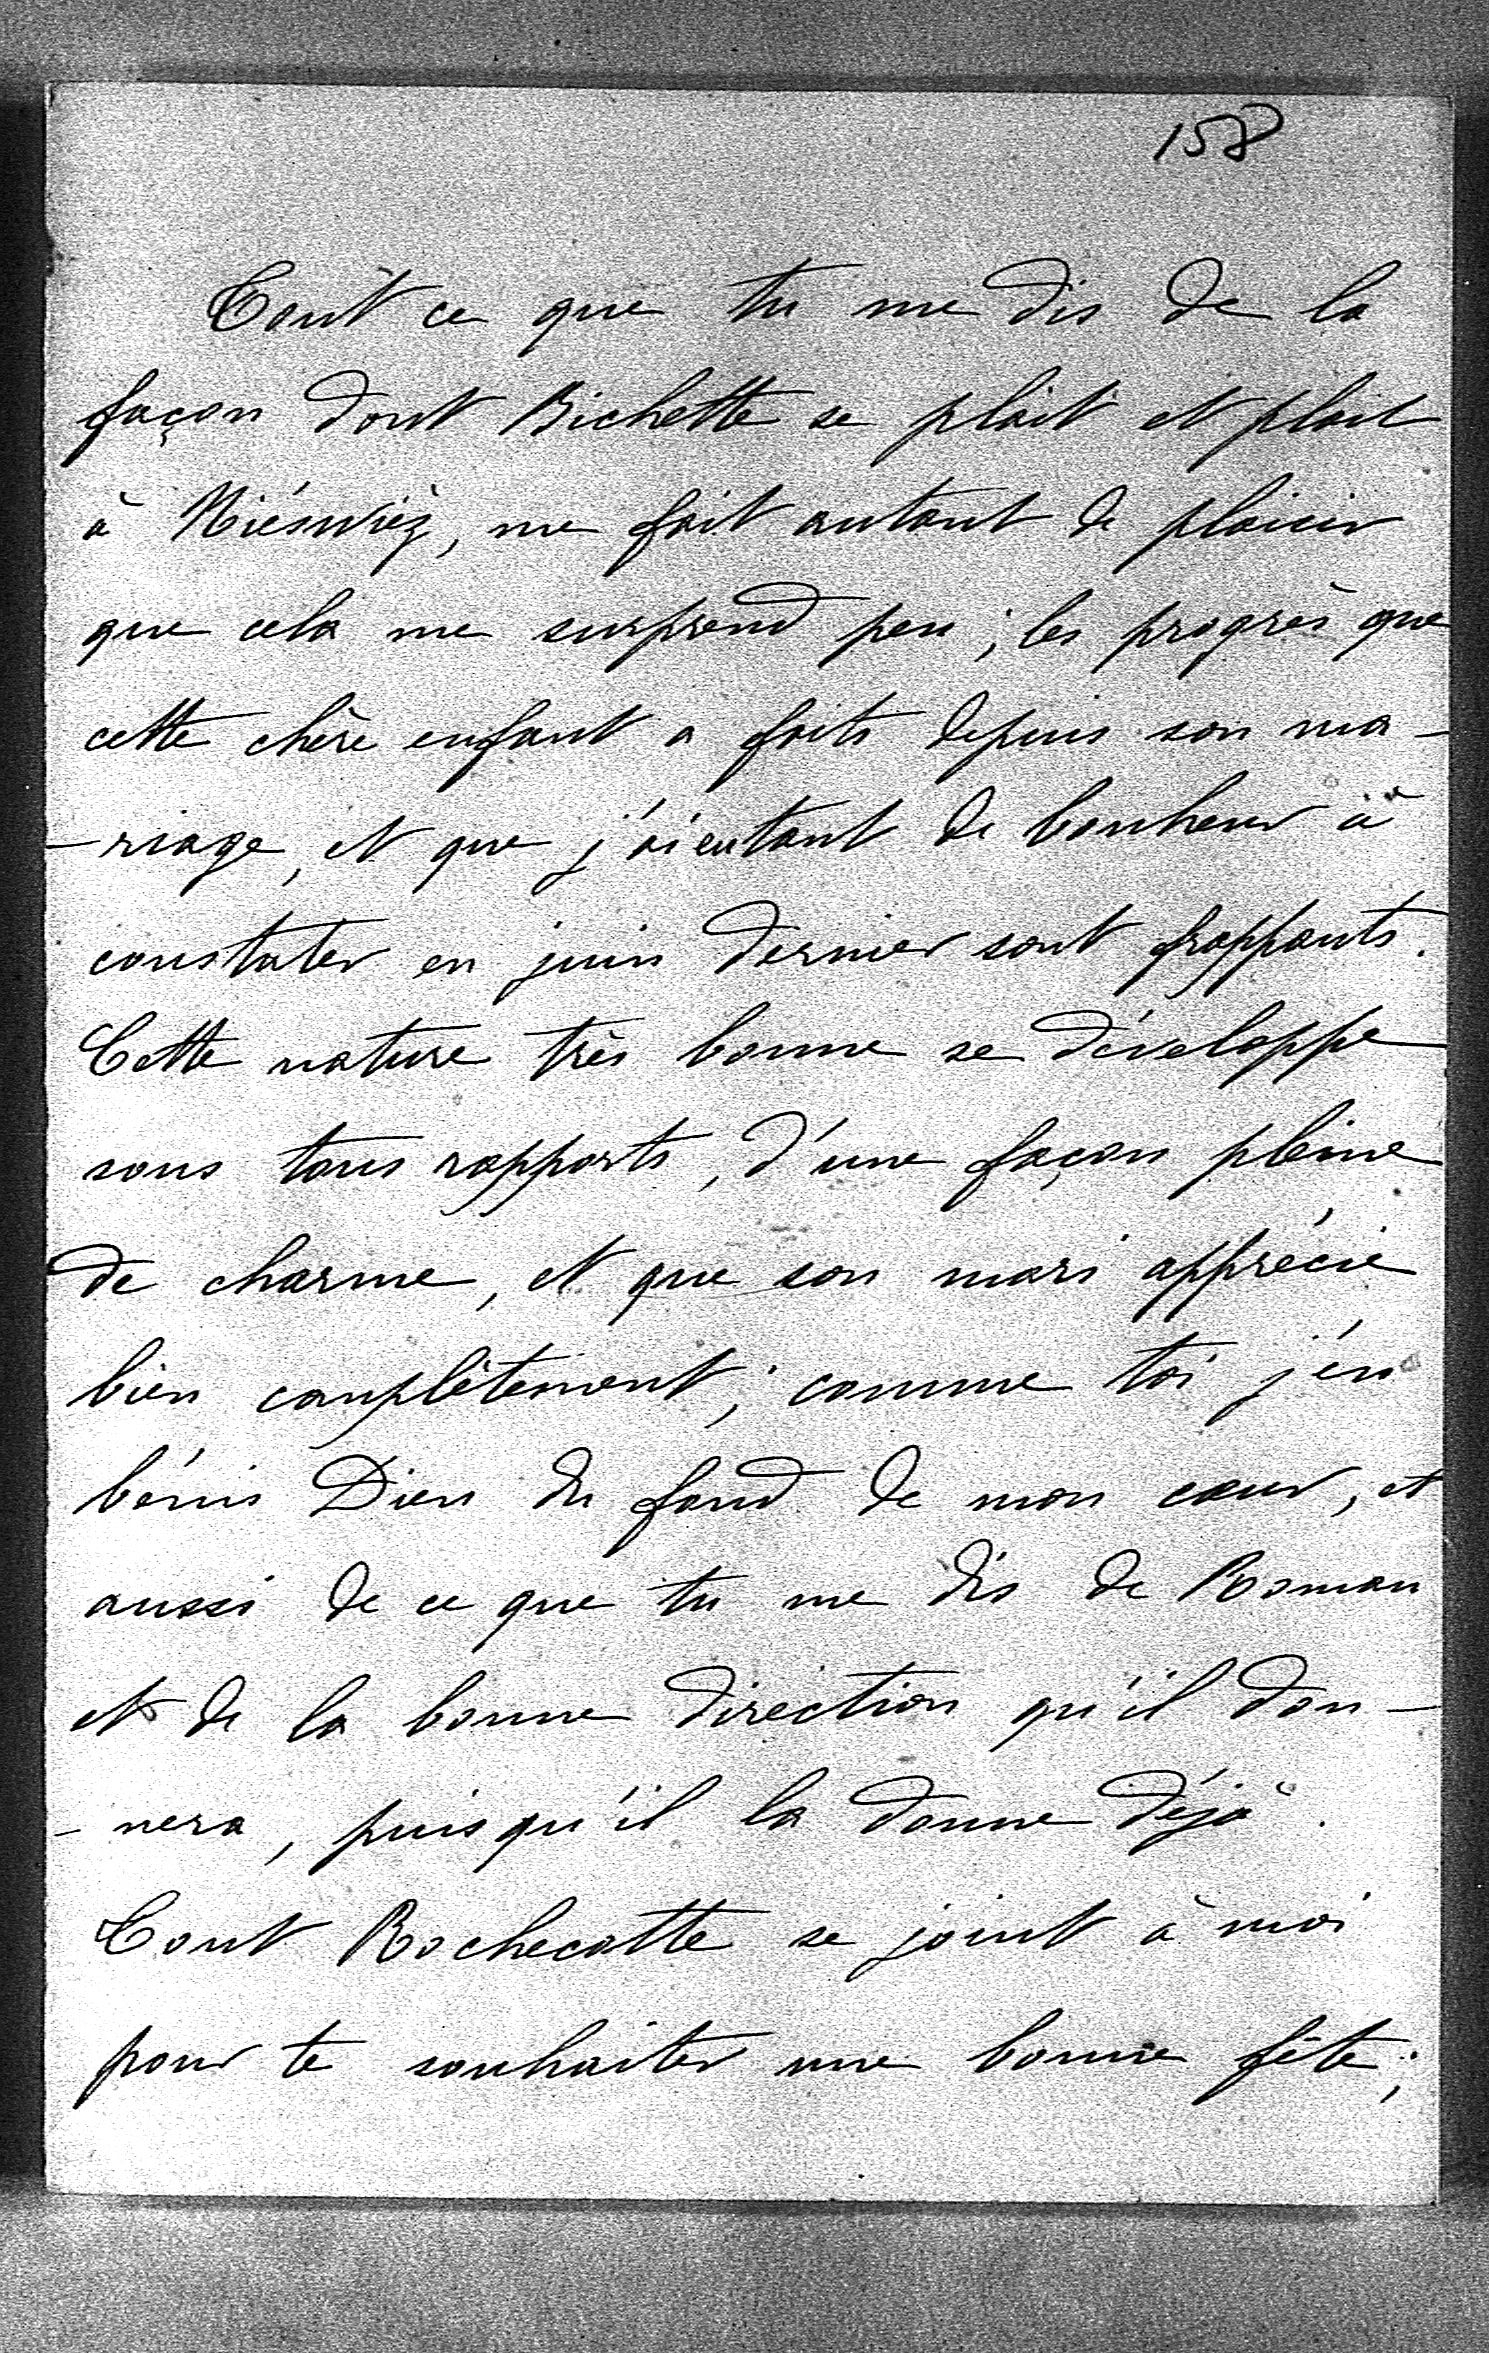 158
Tout ce que tu me dis de la
façon dont Bichette se plait et plait
à Niéswiéz, me fait autant de plaisir
que cela me surprend peu ; les progrès que
cette chère enfant a faits depuis son ma-
-riage, et que j'ai eu tant de bonheur à
constater en juin dernier sont frappants.
Cette nature très bonne se développe
sous tous rapports, d'une façon pleine
de charme, et que son mari apprécie
bien complètement ; comme toi j'en
bénis Dieu du fond de mon cœur, et
aussi de ce que tu me dis de Roman
et de la bonne direction qu'il don-
-nera, puisqu'il la donne déjà.
Tout Rochecotte se joint à moi
pour te souhaiter une bonne fête ;